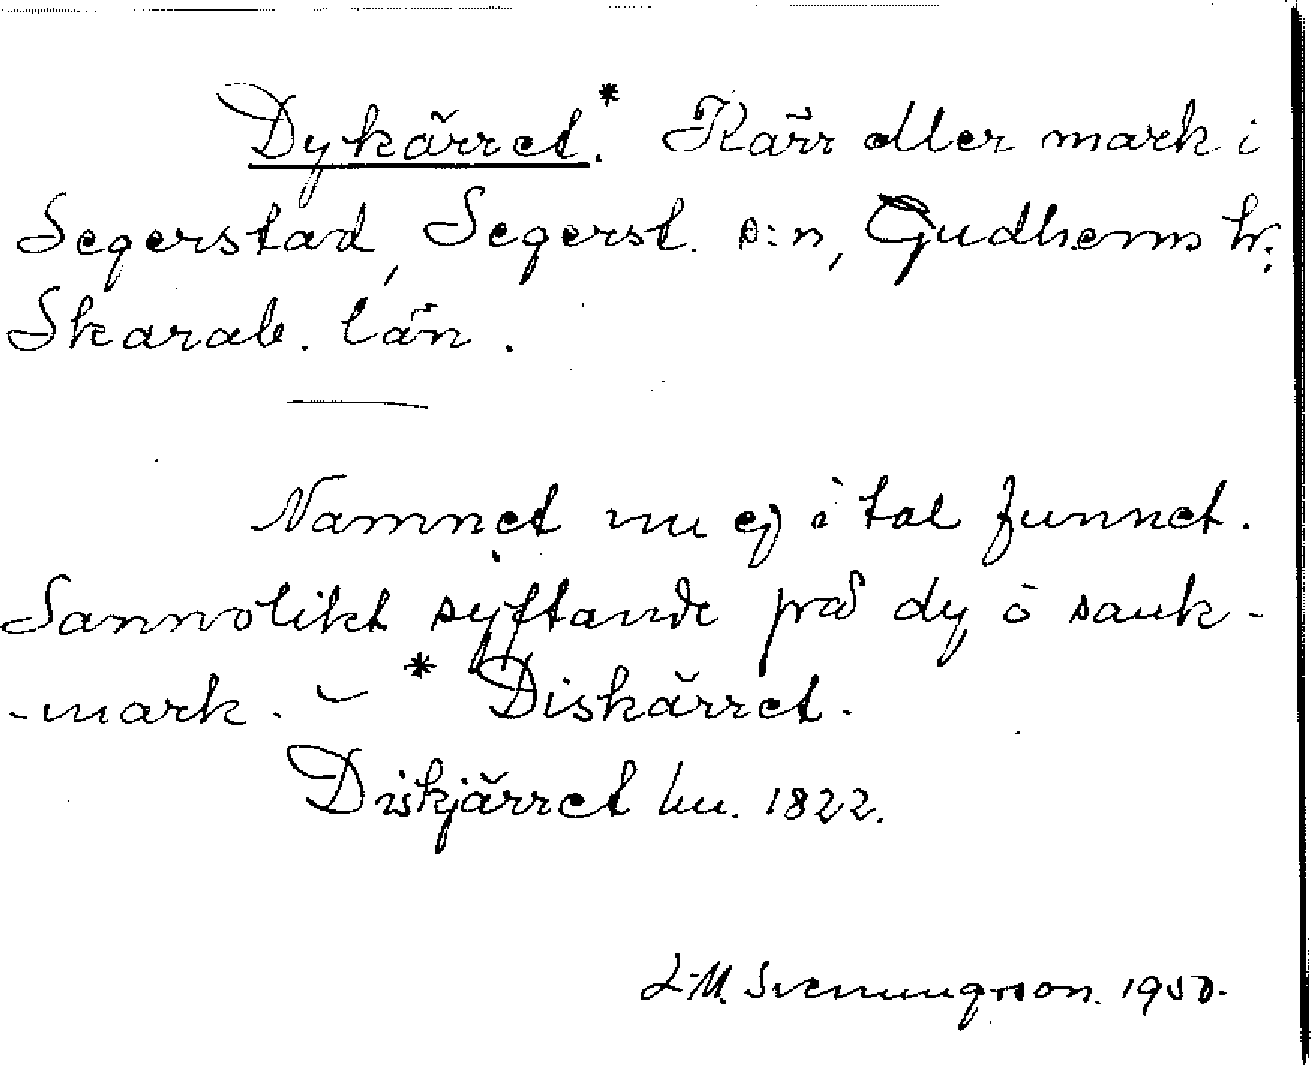 Dykärret.* Kärr eller mark i
Segerstad, Segerst. s:n, Gudhems hr.
Skarab. län.
Namnet nu ej i tal funnet.
Sannolikt syftande på dy o sank-
-mark. – * Diskärret.
Diskjärret hu. 1822.
L-M. Svenungsson. 1950.